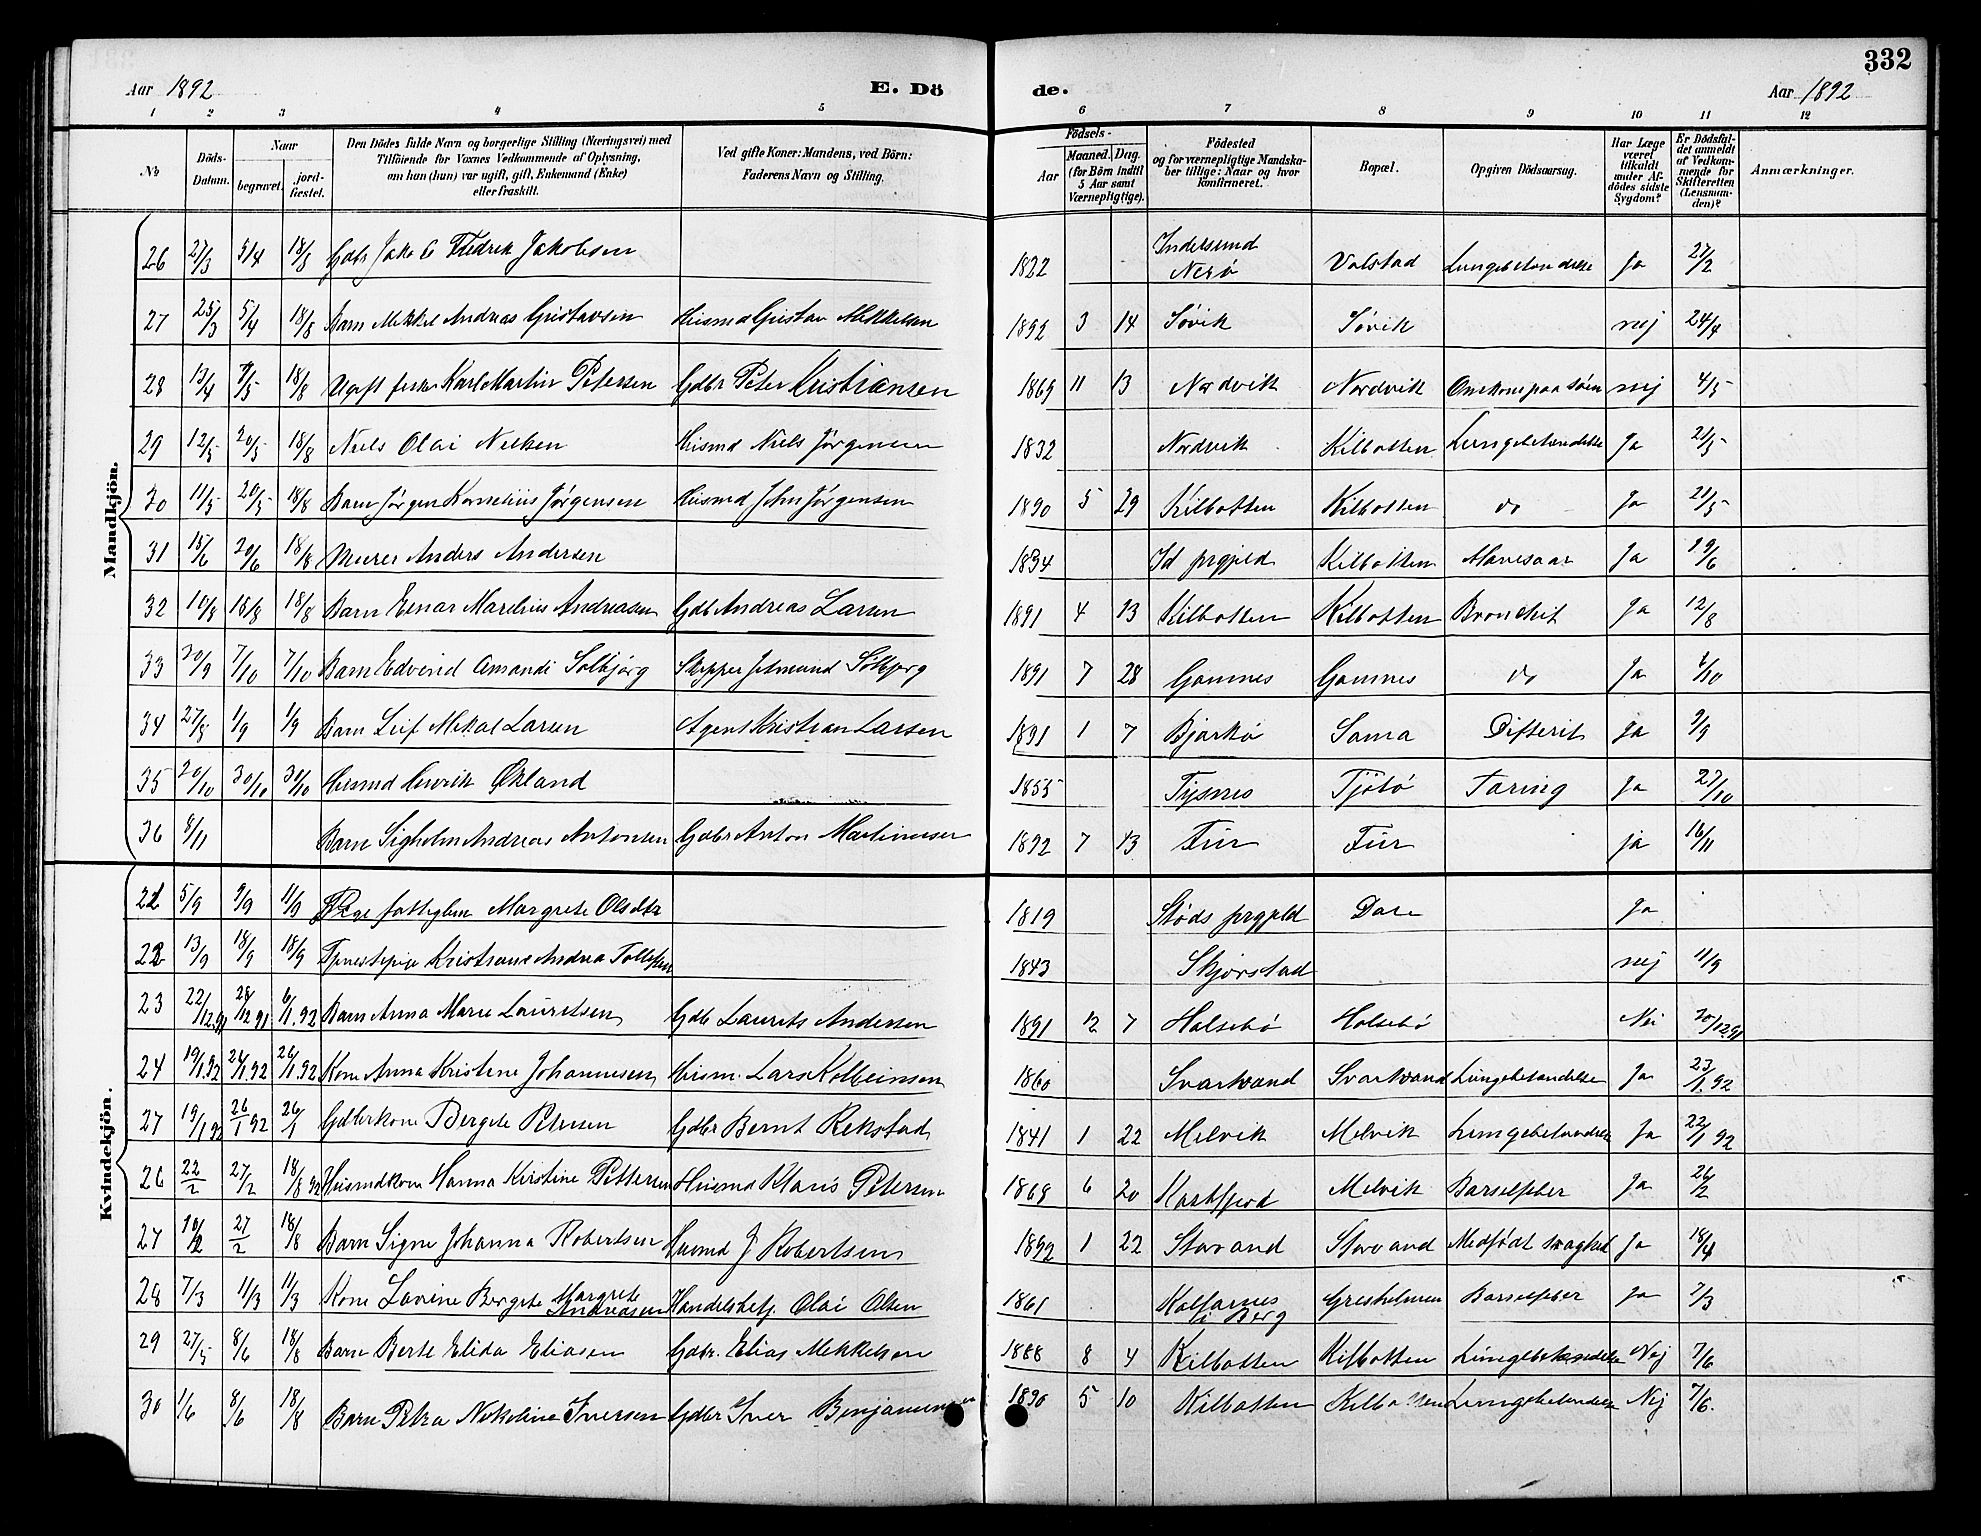 332
Aar 1892 E. Dö de. Aar 1892
1 2 3 4 5 6 7 8 9 10 11 12
No Döds-Datum. Naar begravet. jord-fæstet. Den Dödes fulde Navn og borgerlige Stilling (Næringsvei) med Tilföiende for Voxnes Vedkommende af Oplysning, om han (hun) var ugift, gift, Enkemand (Enke) eller fraskilt. Ved gifte Koner: Mandens, ved Börn: Faderens Navn og Stilling. Födsels- Aar Maaned. Dag. (for Börn indtil 5 Aar samt Værnepligtige). Födested og for værnepligtige Mandskaber tillige: Naar og hvor konfirmeret. Bopæl. Opgiven Dödsaarsag. Har Læge været tilkaldt under Afdödes sidste Sygdom? Er Dödsfaldet anmeldt af Vedkommende for Skifteretten (Lensmanden)? Anmærkninger.
Mandkjön.
26 27/3 5/4 18/8 Gdbr Fredrik Jakobsen 1822 Indersund Nerö Valstad Lungebetændelse Ja 27/2
27 25/3 5/4 18/8 Barn Mikkel Andreas Gustavsen Huismd Gustav Mikkelsen 1892 3 14 Søvik Søvik nej 24/4
28 13/4 18/8 Ugift fisker Karl Martin Petersen Gdbr Peter Kristiansen 1869 11 13 Nordvik Nordvik Omkom paa Søen nej 4/5
29 12/5 20/5 18/8 Niels Olai Nielsen Huismd Niels Jørgensen 1832 Nordvik Kilbotten Lungebetændelse Ja 21/5
30 11/5 20/5 18/8 Barn Jørgen Kornelius Jørgensen Huismd John Jørgensen 1890 5 29 Kilbotten Kilbotten do Ja 21/5
31 15/6 20/6 18/8 Murer Anders Andersen 1834 Id prgjeld Kilbotten Mavesaar Ja 19/6
32 10/8 18/8 18/8 Barn Einar Marelius Andreasen Gdb Andreas Larsen 1891 4 13 Kilbotten Kilbotten Bronchit Ja 12/8
33 30/9 7/10 7/10 Barn Edvind Amandi Solbjørg Skipper Solbjørg 1891 7 28 Gamnes Gamnes do Ja 1/10
34 27/8 1/9 1/9 Barn Leif Mikal Larsen Agent Kristian Larsen 1891 1 7 Bjarkö Sama Difterit Ja 2/9
35 20/10 30/10 30/10 Huismd Henrik Økland 1855 Tysnes Tjötö Taring Ja 27/10
36 8/11 Barn Sigholm Andreas Antonsen Gdbr Anton Martinusen 1892 7 13 Fur Fur ja 16/11
Kvindekjön.
21 5/9 9/9 11/9 Pige fattiglem Margrete Olsdtr 1819 Støds prgjeld Dare Ja
22 13/9 18/9 18/9 Tjenestepige Kristiane Andrea Tollefsen 1843 Skjørstad nej 11/9
23 22/12.91 28/12 91 6/1.92 Barn Anna Marie Lauritsen Gdb Laurits Andersen 1891 12 7 Halsebö Halsebö Nei 30/12 91
24 19/1.92 26/1.92 26/1.92 Kone Anna Kristine Johannesen Huism. Lars Kolbeinsen 1860 Svartvand Svartvand Lungebetændelse Ja 23/1.92
27 19/1 92 26/1 92 26/1 Gdbrkone Bergete Petersen Gdbr Bernt Rekstad 1841 1 22 Melvik Melvik Lungebetændelse Ja 22/1 92
26 22/2 27/2 18/8 92 Huismdkone Hanna Kirstine Pettersen Huismd Klaus Petersen 1868 6 20 Kastfjord Melvik Barselfeber Ja 26/2
27 10/2 27/2 18/8 Barn Signe Johanna Robertsen Huismd J Robertsen 1892 1 22 Storvand Storvand Medfödt svaghed Ja 18/4
28 7/3 11/3 11/3 Kone Lovine Bergete Margrete Andreasen Handelsbetj. Olai Olsen 1861 i Berg Gresholmen Barselfeber Ja 7/3
29 27/5 8/6 18/8 Barn Berte Elida Eliasen Gdbr. Elias Mikkelsen 1888 8 4 Kilbotten Kilbotten Lungebetændelse Nej 7/6
30 1/6 8/6 18/8 Barn Petra Nikoline Iversen Gdbr Iver Benjaminsen 1890 5 10 Kilbotten Kilbotten Lungebetændelse Nej 7/6.